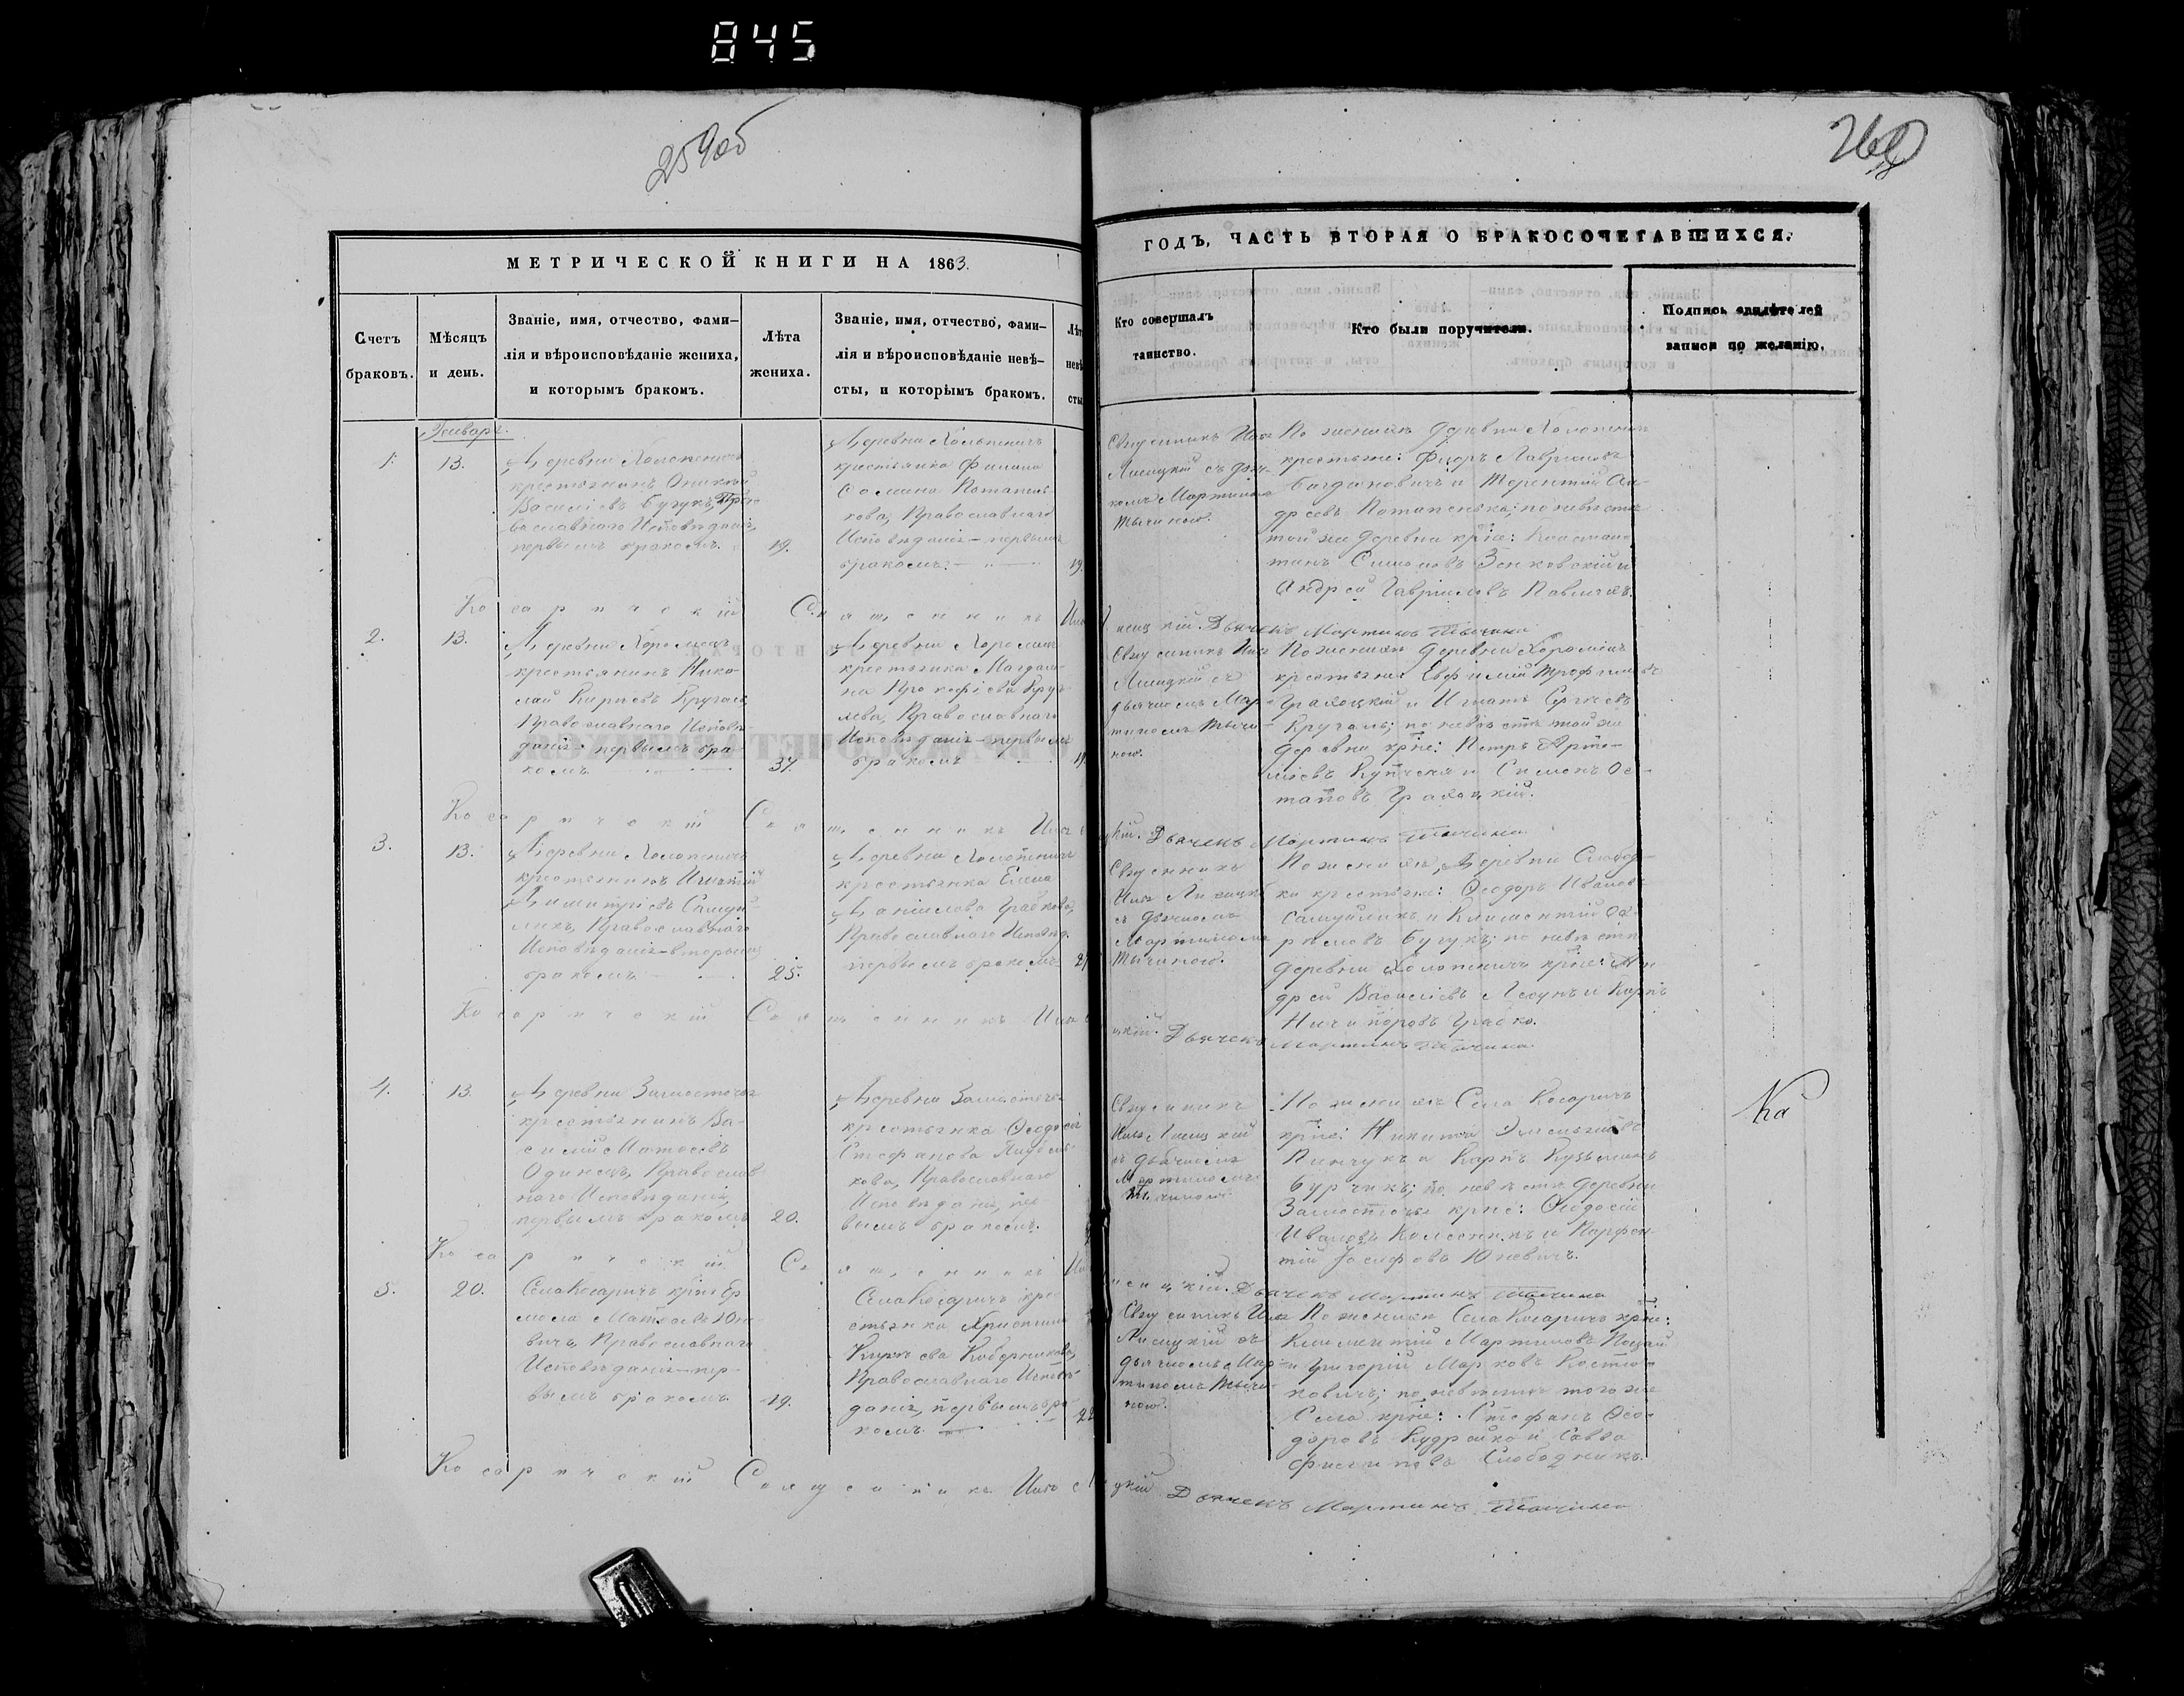 845
259об
260
МЕТРИЧЕСКОЙ КНИГИ НА 1863.
ГОДЪ, ЧАСТЬ ВТОРАЯ О БРАКОСОЧЕТАВШИХСЯ.
Счетъ
браковъ.
Мѣсяцъ
и день.
Званіе, имя, отчество, фами-
лія и вѣроисповѣданіе жениха,
и которымъ бракомъ.
Лѣта
жениха.
Званіе, имя, отчество, фами-
лія и вѣроисповѣданіе невѣ-
сты, и которымъ бракомъ.
Лѣт
невѣ
сты
Кто совершалъ
таинство.
Кто были поручители.
Подпись свидѣтелей
записи по желанію.
Январь.
1.
13.
Деревни Холопеничъ
крестьянинъ
Василіевъ Бугукъ, Пра-
вославнаго Исповѣданія,
первымъ бракомъ.
19.
Деревни Холопеничъ
крестьянка
Сомина Потапень-
кова, Православнаго
Исповѣданія – первымъ
бракомъ.
19.
Священникъ Илья
Лисицкій съ дья-
комъ Мартиномъ
Тычиною.
По женихѣ деревни Холопеничъ
крестьяне: Ѳедоръ Лавриновъ
Богдановичъ и Терентій Ан-
дреевъ Потапенька; по невѣстѣ
той же деревни кр-не: Констан-
тинъ Симоновъ Зенковскій и
Андрей Гавриловъ Павлючъ.
Косаричскій Священникъ Илья Лисицкій. Дьячекъ Мартинъ Тычина
2.
13.
Деревни Хоромецъ
крестьянинъ Нико-
лай Кирѣевъ Кругаль,
Православнаго Исповѣ-
данія – первымъ бра-
комъ
37.
Деревни Хоромецъ
крестьянка Магдали-
на Прокофіева Кру-
лева, Православнаго
Исповѣданія – первымъ
бракомъ
19
Священникъ Илья
Лисицкій съ
дьячкомъ Мар-
тиномъ Тычи-
ною.
По женихѣ деревни Хоромецъ
крестьяне Евфимій Трофимовъ
Градоцкій и Игнатъ Сергѣевъ
Кругаль; по невѣстѣ той же
деревни кр-не: Петръ Арте-
міевъ и Симонъ Ос-
таповъ Градоцкій.
Косаричскій Священникъ Илья Лисицкій. Дьячекъ Мартинъ Тычина
3.
13.
Деревни Холопеничъ
крестьянинъ Игнатій
Димитріевъ Самуй-
ликъ, Православнаго
Исповѣданія – вторымъ
бракомъ
25.
Деревни Холопеничъ
крестьянка Елена
Даніилова Грабкова,
Православнаго Исповѣд.
первымъ бракомъ
21
Священникъ
Илья Лисицкій
съ дьячкомъ
Мартиномъ
Тычиною.
По женихѣ, Деревни Слобод-
ки крестьяне: Ѳеодоръ Ивановъ
Самуйликъ и Климентій
Бугукъ; по невѣстѣ
деревни Холопеничъ кр-не: Ан-
дрей Василіевъ и Карпъ
Ничипоровъ Грабко.
Косаричскій Священникъ Илья Лисицкій. Дьячекъ Мартинъ Тычина
4.
13.
Деревни Замосточья
крестьянинъ Ва-
силій Матѳеевъ
Одинецъ, Православ-
наго Исповѣданія,
первымъ бракомъ
20.
Деревни Замосточья
крестьянка Ѳеодосія
Стефанова
кова, Православнаго
Исповѣданія, пер-
вымъ бракомъ.
Священникъ
Илья Лисицкій
съ дьячкомъ
Мартиномъ
Тычиною.
По женихѣ Села Косаричъ
кр-не: Никита Емельяновъ
Пинчукъ и Карпъ Кузьминъ
Бурчикъ; по невѣстѣ деревни
Замосточья кр-не: Ѳеодосій
Ивановъ Колесникъ и Парфен-
тій Іосифовъ Юневичъ.
На
Косаричскій Священникъ Илья Лисицкій. Дьячекъ Мартинъ Тычина
5.
20.
Села Косаричъ кр-нъ Ер-
мола Матѳеевъ Юне-
вичъ, Православнаго
Исповѣданія – пер-
вымъ бракомъ.
19.
Села Косаричъ кре-
стьянка Христина
Кирѣева Коберникова,
Православнаго Исповѣ-
данія, первымъ бра-
комъ
22
Священникъ Илья
Лисицкій съ
дьячкомъ Мар-
тиномъ Тычи-
ною.
По женихѣ Села Косаричъ кр-не:
Климентій Мартиновъ
и Григорій Марковъ Костю-
ковичъ; по невѣстѣ того же
Села кр-не: Стефанъ Ѳео-
доровъ Кудрейко и Савва
Филиповъ Слободникъ.
Косаричскій Священникъ Илья Лисицкій Дьячекъ Мартинъ Тычина